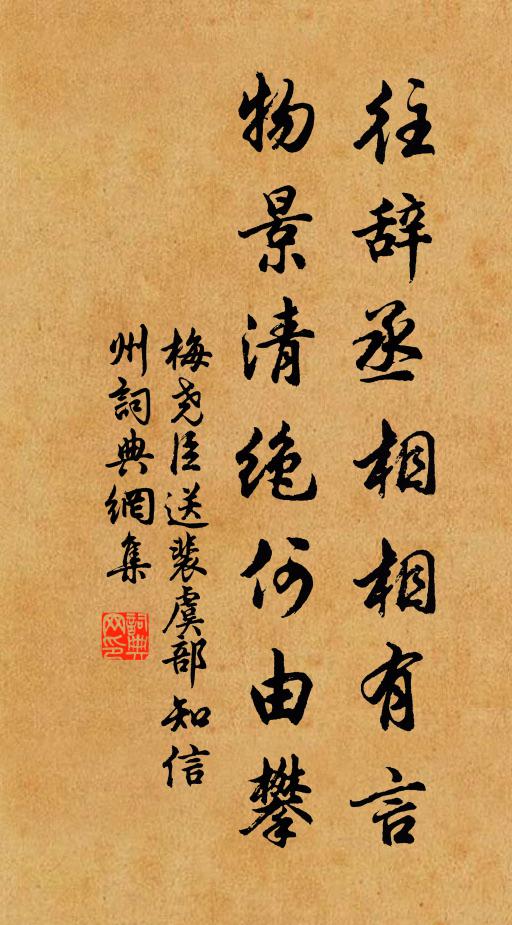 往辞丞相相有言
物景清绝何由攀
梅尧臣送裴虞部知信
州詞典網集
詞典
网印